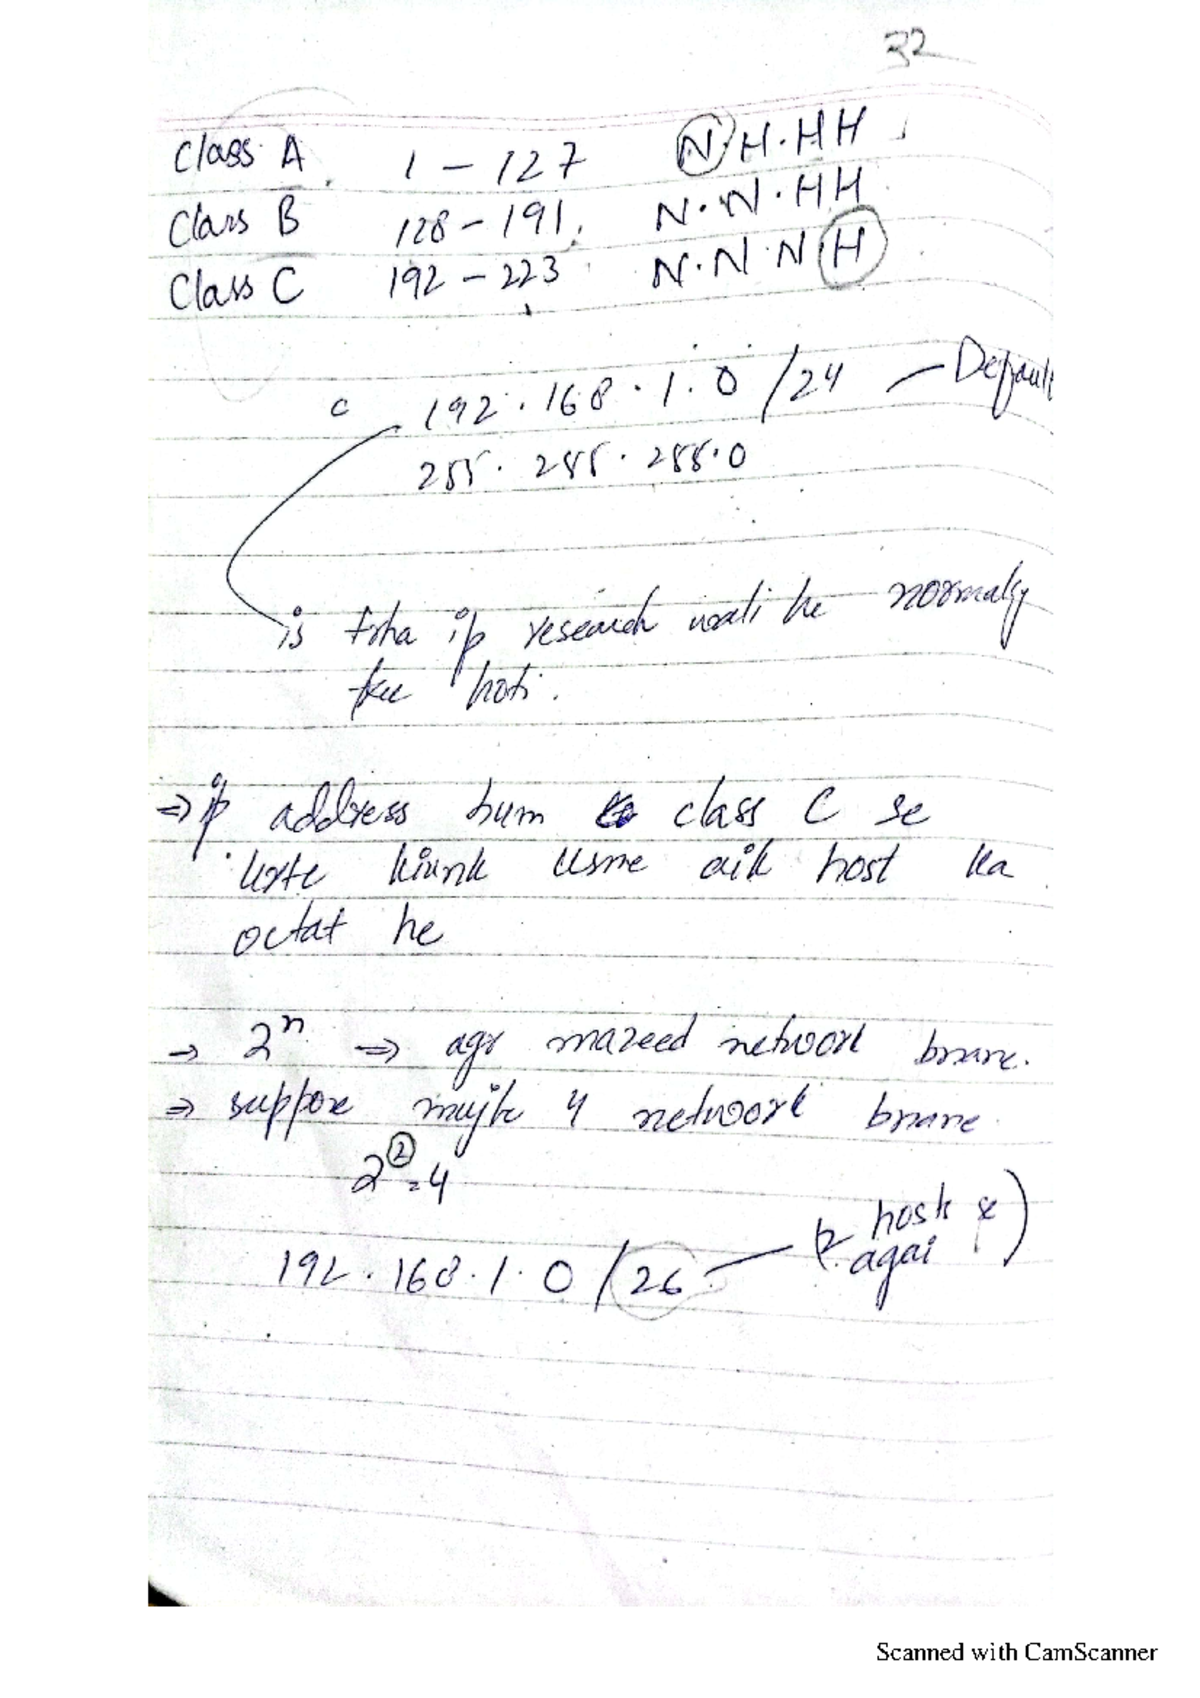 32
Class A 1 - 127 N.H.HH
Class B 128 - 191. N.N.HH
Class C 192 - 223 N.N.N.H
c 192.168.1.0 /24 - Default
255.255.255.0
is trha ip research wali he normaly
free hoti.
⇒ ip address hum class C se
krte kiunk usme aik host ka
octat he
→ 2ⁿ ⇒ agr mazeed network bnane.
⇒ suppose mujhe 4 network bnane.
2² = 4
192.168.1.0 /26 - (2 host
agai )
Scanned with CamScanner